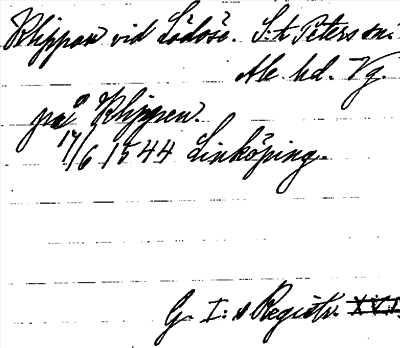 Klippan vid Lödöse. S:t Peters sn:
Ale hd. Vg.
på Klippen.
17/6 1544 Linköping.
G. I:s Registr. XVI